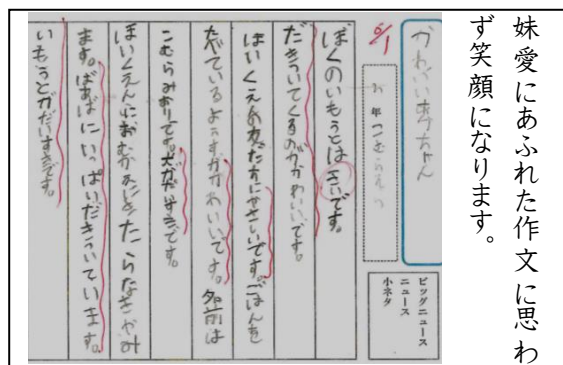 妹愛にあふれた作文に思わ
ず笑顔になります。
ビッグニュース
ニュース
小ネタ
かわいい
ちゃん
6/1
年
ぼくのいもうとは さいです。
だきついてくるのがかわいいです。
ほいくえんの友だちにやさしいです。ごはんを
たべているようすがかわいいです。名前は
こむらみおりです。犬がだいすきです。
ほいくえんにおむかえにきたらなきやみ
ます。ばあばにいっぱいだきついています。
いもうとがだいすきです。